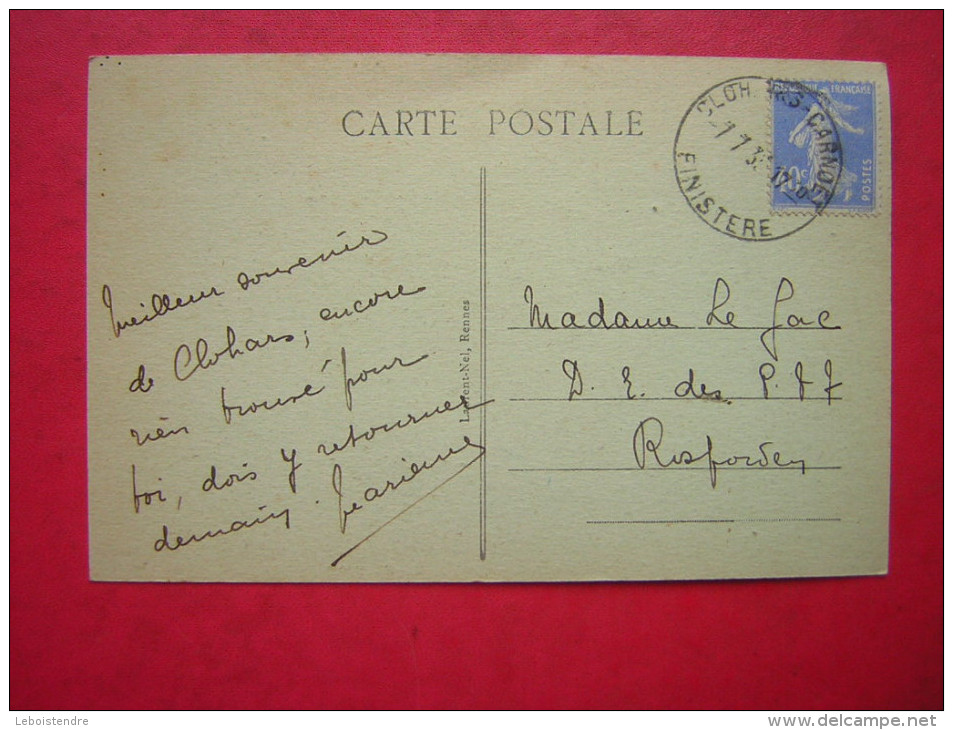 CARTE POSTALE
CLOH RS-CARNOET
FINISTERE
FRANÇAISE
POSTES
Meilleur souvenir
de Clohars, encore
rien trouvé pour
toi, dois y retourner
demain. Marienne
Laurent-Nel, Rennes
Madame Le Gac
D. E. des P.T.T
Rosporden
Leboistendre
www.delcampe.net